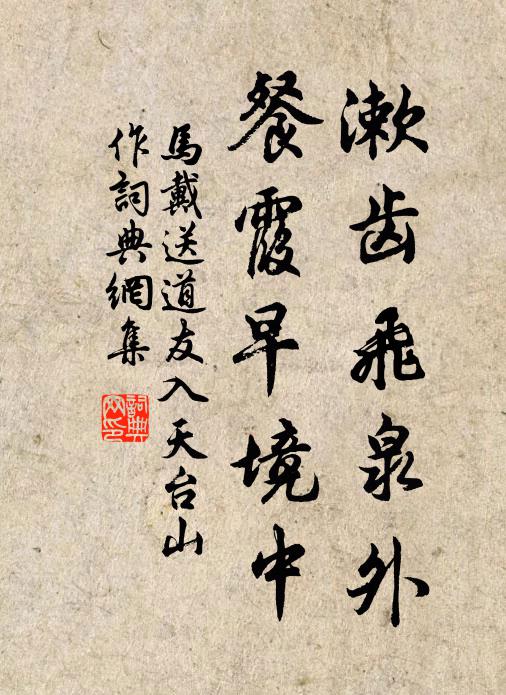 漱齿飛泉外
餐霞早境中
馬戴送道友入天台山
作詞典網集
詞典網印